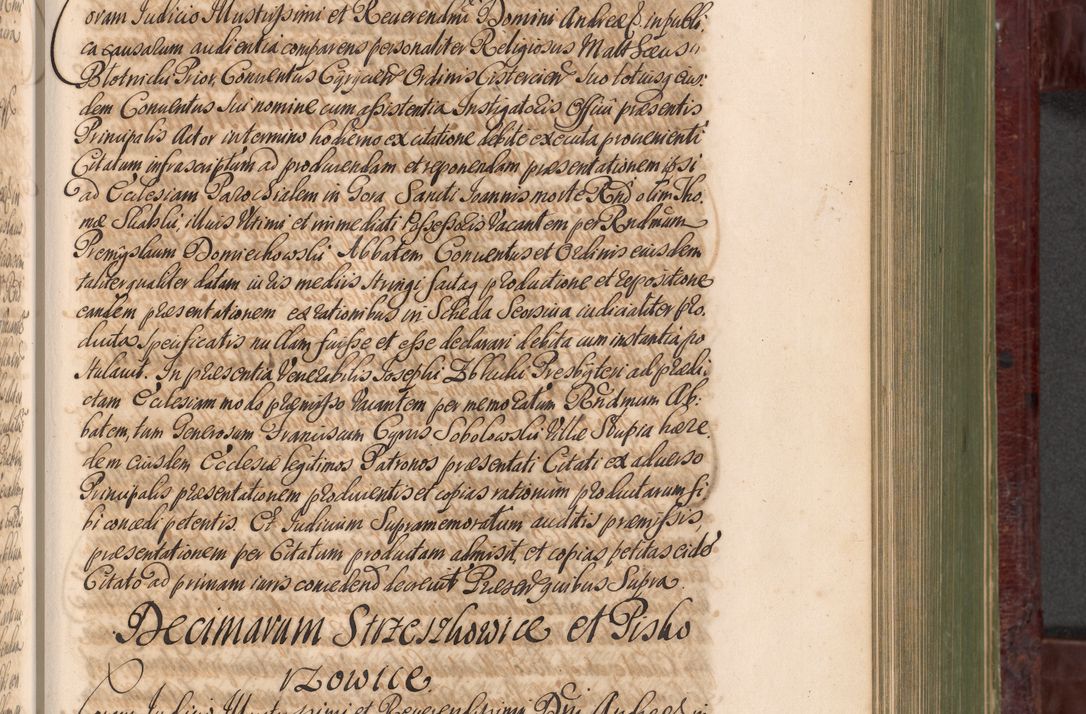 oram Judicio Illustrissimi et Reverendmi Domini Andreæ &. in publi
ca causalum audientia comparens personaliter Religiosus Matthæus
Blotnicki Prior Conventus Cyrycen Ordinis Cistercien suo totiusq eius
dem Conventus sui nomine cum assistentia Instigatoris Officii præsentis
Principalis Actor in termino hodierno ex citatione debite executa provenienti
Citatum infrascriptum ad producendam et reponendam præsentationem ipsi
ad Ecclesiam Parochialem in Gora Sancti Joannis morte Rndi olim Tho
mæ Skabski, illius Ultimi et immediati Possessoris Vacantem per Rndmum
Premislaum Domiechowski Abbatem Conventus et Ordinis eiusdem
taliter qualiter datam iuris mediis stringi factaq productione et repositione
eandem præsentationem ex rationibus in Scheda Seorsiva iudicialiter pro
ductis specificatis nullam fuisse et esse declarari debita cum instantia po
stulavit. In præsentia Venerabilis Josephi Zbluki Presbyteri ad prædi
ctam Ecclesiam modo præmisso Vacantem per memoratum Rndmum Ab:
batem, tum Generosum Franciscum Cyrus Sobolowski Villæ Stupia hære
dem eiusdem Ecclesiæ legitimos Patronos præsentati Citati ex adverso
Principalis præsentationem producentis et copias rationum productarum si
bi concedi petentis. Et Judicium Supramemoratum auditis præmissis
præsentationem per Citatum productam admisit, et copias petitas eidem
Citato ad primam iuris concedend decrevit Præsen quibus Supra.
Decimarum Strzeszkowice et Pisko
rzowice.
oram Judicio Illustrissimi et Reverendissimi Dni Andreæ &. in